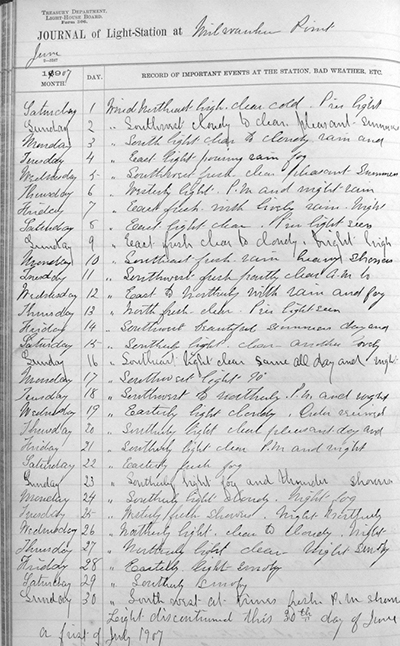 TREASURY DEPARTMENT,
LIGHT-HOUSE BOARD.
Form 306.
JOURNAL of Light-Station at Milwaukee Point
June
1907
MONTH DAY. RECORD OF IMPORTANT EVENTS AT THE STATION, BAD WEATHER, ETC.
Saturday 1 Wind Northeast high clear cold. Pier light
Sunday 2 " Southwest cloudy to clear pleasant summer
Monday 3 " South light clear to cloudy rain and
Tuesday 4 " East light pouring rain fog
Wednesday 5 " Southwest fresh clear pleasant Summer
Thursday 6 " Westerly light. P.M and night rain
Friday 7 " East fresh with lively rain. Night
Saturday 8 " East light clear. Pier light seen
Sunday 9 " East fresh clear to cloudy. bright high
Monday 10 " Southeast fresh rain heavy showers
Tuesday 11 " Southwest fresh partly clear A.M
Wednesday 12 " East to Northerly with rain and fog
Thursday 13 " North fresh clear. Pier light seen
Friday 14 " Southwest beautiful summer day and
Saturday 15 " Southerly light clear another lovely
Sunday 16 " Southeast light clear same all day and night
Monday 17 " Southwest light 90°
Tuesday 18 " Southwest to northerly P.M and night
Wednesday 19 " Easterly light cloudy.
Thursday 20 " Southerly light clear pleasant day and
Friday 21 " Southerly light clear P.M and night
Saturday 22 " Easterly fresh fog
Sunday 23 " Southerly light fog and thunder showers
Monday 24 " Southerly light cloudy. Night fog
Tuesday 25 " Westerly fresh showers. Night Northerly
Wednesday 26 " Northerly light. clear to cloudy. Night
Thursday 27 " Northerly light clear Night smoky
Friday 28 " Easterly light smoky
Saturday 29 " Southerly smoky
Sunday 30 " South west at times fresh P.M
Light discontinued this 30th day of June
or first of July 1907